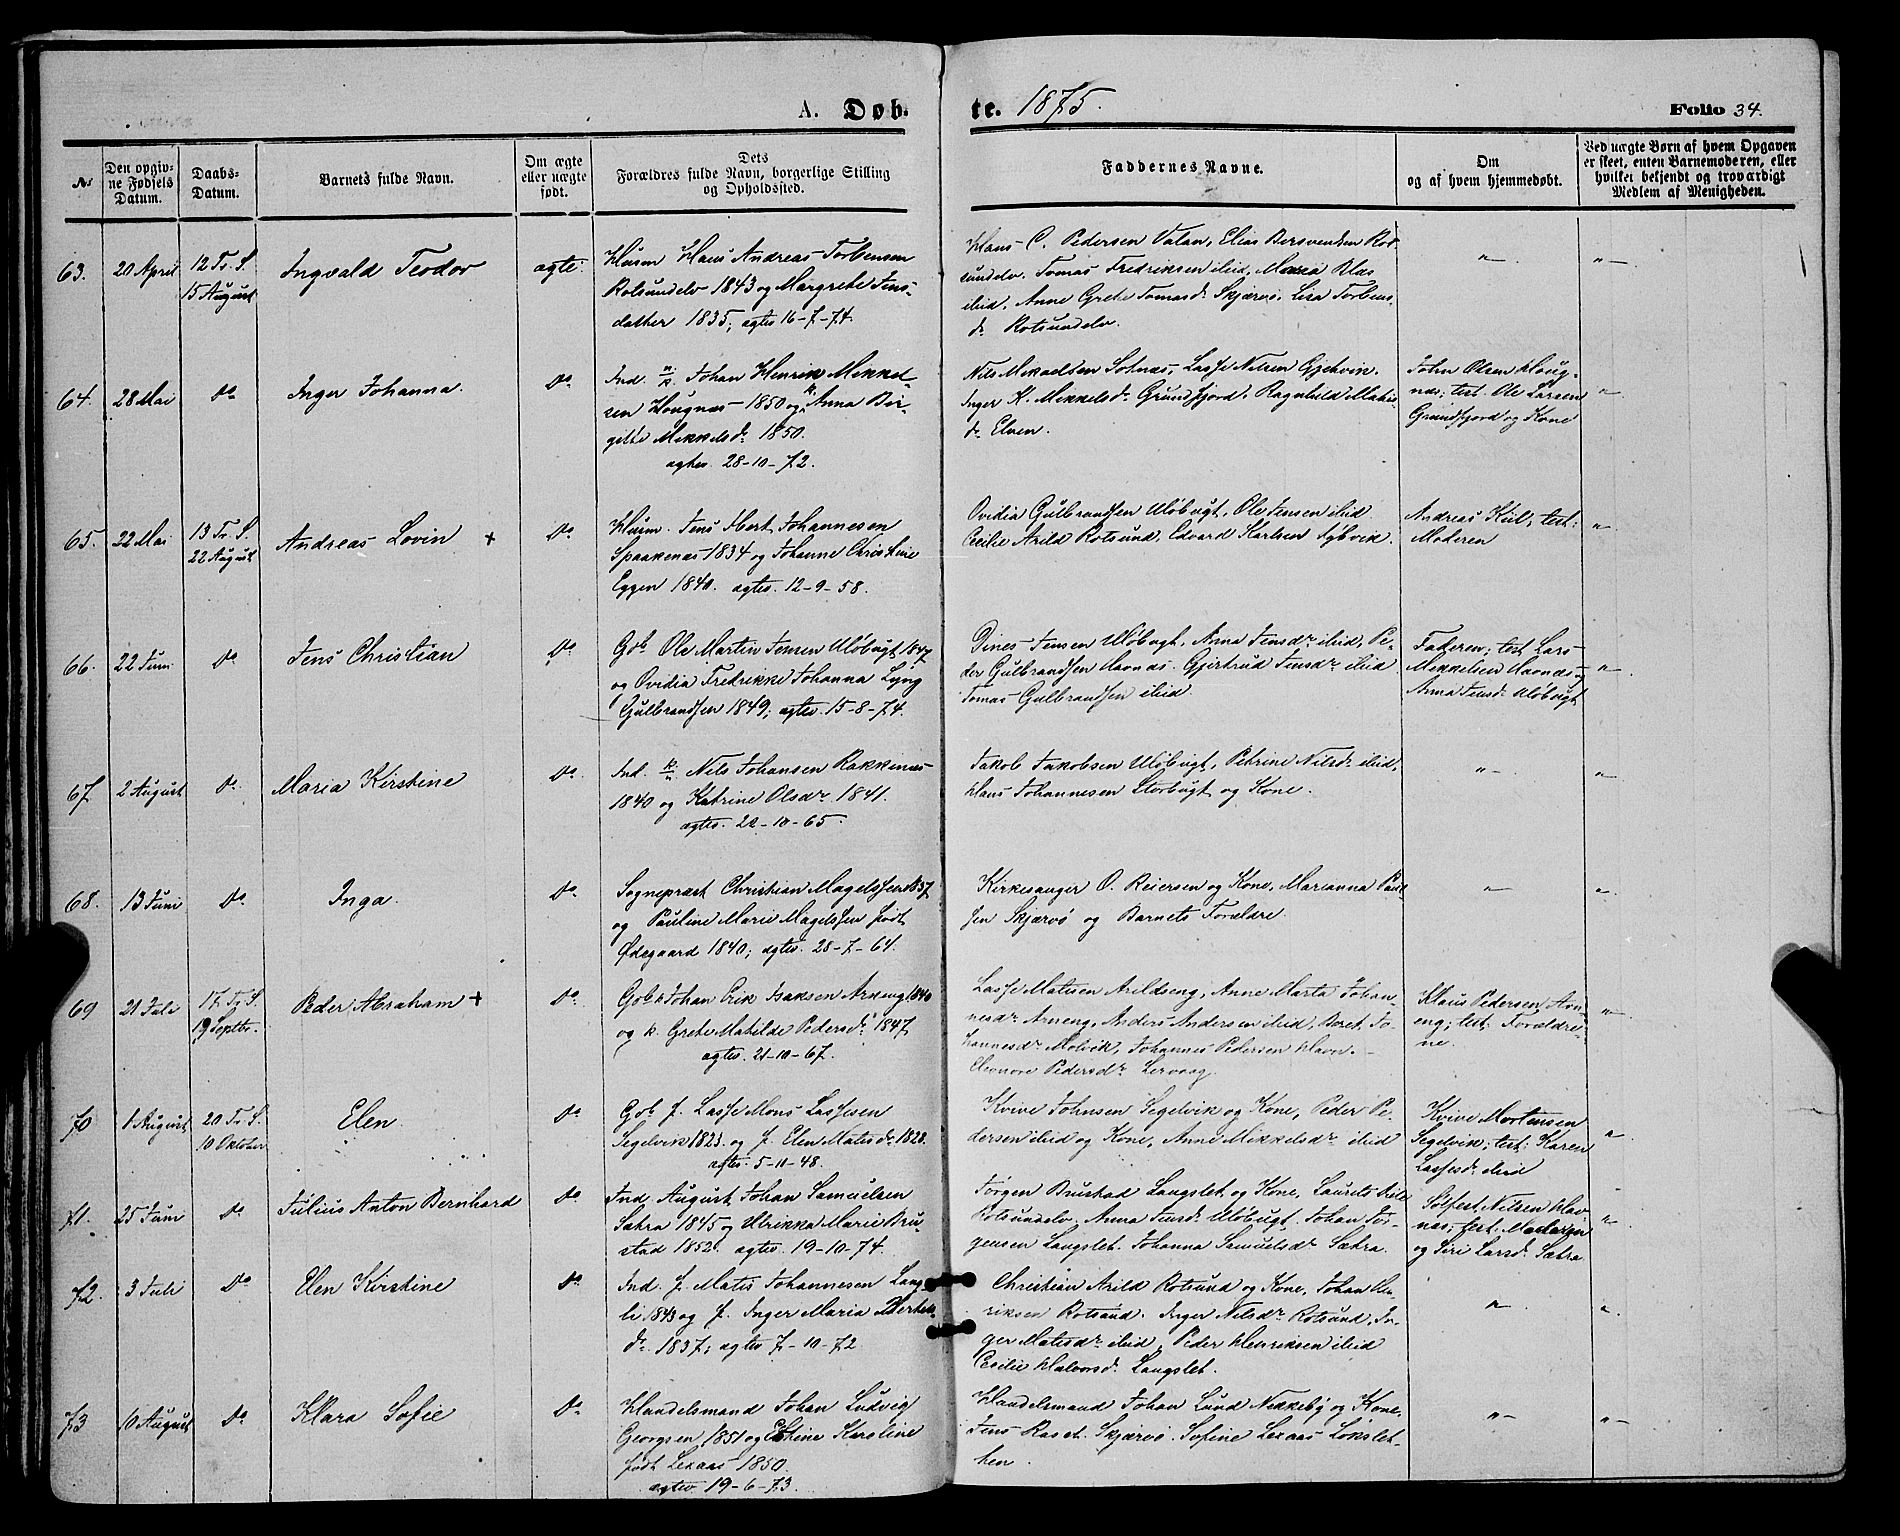 A. Døb- te. 1875. Folio 34.
No
Den opgiv-
ne Fødsels
Datum.
Daabs-
Datum.
Barnets fulde Navn.
Om ægte
eller uægte
født.
Dets
Forældres fulde Navn, borgerlige Stilling
og Opholdssted.
Faddernes Navne.
Om
og af hvem hjemmedøbt.
Ved uægte Børn af hvem Opgaven
er skeet, enten Barnemoderen, eller
hvilket bekjendt og troværdigt
Medlem af Menigheden.
63. 20 April
12 Tr. S.
15 August
Ingvald Teodor
ægte.
Husm Hans Andreas Torbensen
Rotsundelv 1843 og Margrete Jens-
datter 1835; ægtev 16-7-74.
Hans C. Pedersen Valan, Elias Bersvendsen Rot
sundelv. Tomas Fredriksen ibid, Maria Klas
ibid, Anne Grete Tomasdr Skjærvø, Lisa Torbens
dr Rotsundelv.
64. 28 Mai Do Inger Johanna. Do
Ind. n/k. Johan Henrik Mikkel-
sen Hougnæs 1850 og Anna Bir-
gitte Mikkelsdr 1850.
ægtev. 28-10-72.
Nils Mikaelsen Solnæs, Lasse Nilsen Gjøvik.
Inger K. Mikkelsdr Grundfjord. Ragnhild Matis
dr Elven.
John Olsen Houg-
næs, test. Ole Larsen
Grundfjord og Kone
65. 22 Mai
13 Tr. S.
22 August
Andreas Lovin + Do
Husm. Jens Hert. Johannesen
Spaakenæs 1834 og Johanne Christine
Eggen 1840. ægtev. 12-9-58.
Ovidia Gulbrandsen Uløbugt, Ole Jensen ibid
Cecilie Arild Rotsund, Edvard Karlsen Sybvik.
Andreas Kiil, test:
Moderen
66. 22 Juni Do Jens Christian Do
Gbr Ole Martin Jensen Uløbugt 1847
og Ovidia Fredrikke Johanna Lyng
Gulbrandsen 1849; ægtev. 15-8-74.
Dines Jensen Uløbugt, Anna Jensdr ibid, Pe-
der Gulbrandsen Havnæs. Gjertrud Jensdr ibid
Tomas Gulbrandsen ibid.
Faderen; test Lars
Mikkelsen Havnæs og
Anna Jensdr Uløbugt
67 2 August Do Maria Kirstine Do.
Ind. k/n Nils Johansen Rakkenæs
1840 og Katrine Olsdr 1841.
ægtev. 22-10-65.
Jakob Jakobsen Uløbugt, Petrine Nilsdr ibid,
Hans Johannesen Storbugt og Kone.
68. 13 Juni Do Inga. Do
Sognepræst Christian Magelssen 1837
og Pauline Marie Magelssen født
Ødegaard 1840; ægtev. 28-7-64.
Kirkesanger O. Reiersen og Kone, Marianna Paul
sen Skjærvø og Barnets Forældre
69 21 Juli
17 Tr S.
19 Septbr.
Peder Abraham + Do
Gbr k Johan Erik Isaksen Arneng 1840
og k. Grete Matilde Pedersdr 1847
ægtev. 21-10-67.
Lasse Matisen Arildseng, Anne Marta Johan-
nesdr Arneng, Anders Andersen ibid, Beret Jo-
hannesdr Molvik, Johannes Pedersen Havn.
Eleonore Pedersdr Lervaag.
Klaus Pedersen Arn-
eng; test: Forældre-
ne.
70 1 August
20 Tr S.
10 Oktober
Elen Do
Gbr f. Lasse Mons Lassesen
Segelvik 1823. og f. Elen Matisdr 1828.
ægtev. 5-11-48.
Kvive Johnsen Segelvik og Kone, Peder Pe-
dersen ibid og Kone, Anne Mikkelsdr ibid
Kvive Mortensen
Segelvik; test: Karen
Lassesdr ibid
71. 25 Juni Do Julius Anton Bernhard Do
Ind August Johan Samuelsen
Sætra 1845 og Ulrikka Marie Bru-
stad 1852. ægtev. 19-10-74.
Jørgen Brustad Langslet og Kone, Laurits Kiil
Rotsundelv. Anna Jensdr Uløbugt. Johan Jør-
gensen Langslet. Johanna Samuelsdr Sætra.
Solfest Nilsen Hav
næs; test: Moderen
og Siri Larsdr Sætra
72. 3 Juli Do Elen Kirstine Do
Ind. f. Matis Johannesen Lang-
li 1843 og f. Inger Maria Mikkels
dr 1837; ægtev 7-10-72
Christian Arild Rotsund og Kone, Johan Hen-
riksen Rotsund. Inger Nilsdr Rotsund, In-
ger Matisdr ibid, Peder Henriksen ibid
Cecilie Halvorsdr Langslet.
73 10 August Do Klara Sofie Do
Handelsmand Johan Ludvig
Georgsen 1851 og Eline Kirstine
født Lexaas 1850.
ægtev 19-6-73.
Handelsmand Johan Lund Nikkeby og Kone.
Jens Raset Skjærvø. Sofine Lexaas Løkslet-
ten.